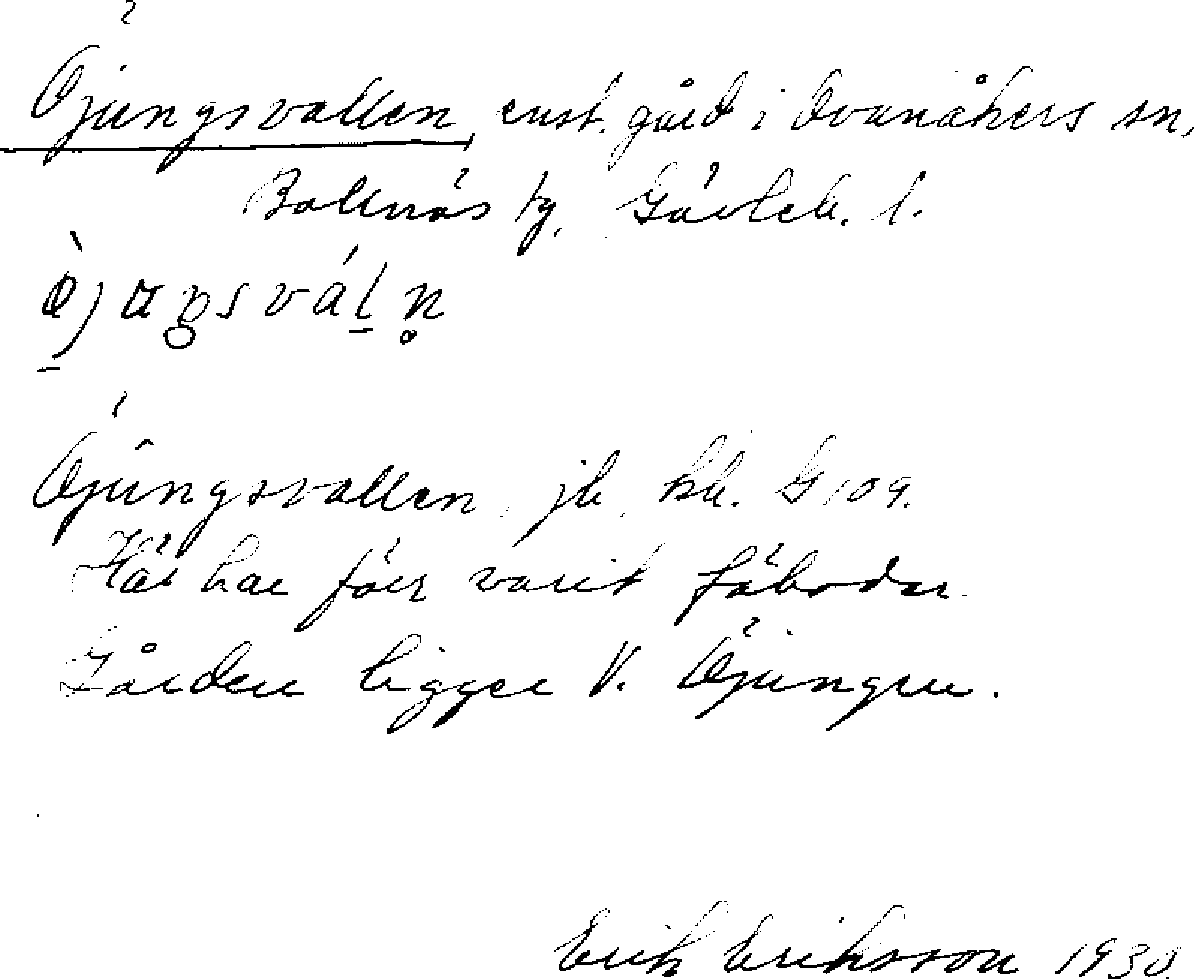 Öjungsvallen, enst. gård i Ovanåkers sn,
Bollnäs tg, Gävleb. l.
Öjungsvallen, jb, hb. G 109.
Här har förr varit fäbodar.
Gården ligger V. Öjungen.
Erik Eriksson 1930